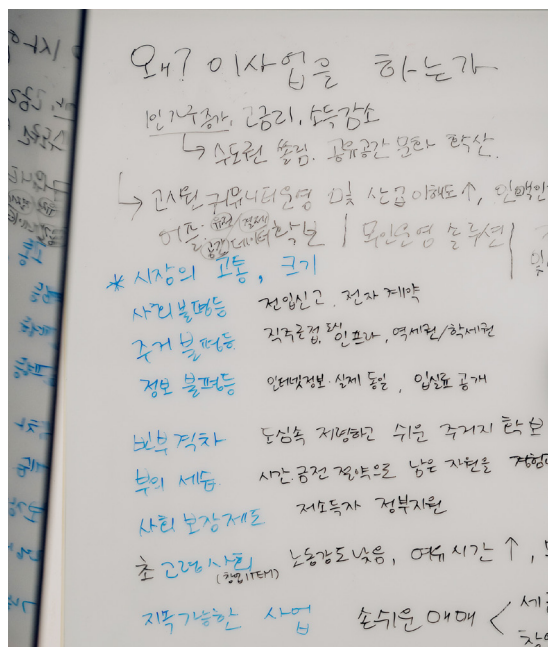 왜? 이사업을 하는가
1인가구증가, 고금리, 소득감소
↳ 수도권 쏠림. 공유공간 문화 확산.
↳ 고시원 커뮤니티운영 및 산업이해도↑,
어플 유저 결제 공간데이터 확보 무인운영 솔루션
* 시장의 고통, 크기
사회불평등 전입신고. 전자계약
주거 불평등 직주근접, 도심인프라, 역세권/학세권
정보 불평등 인터넷정보·실제 동일, 입실료 공개
빈부격차 도심속 저렴하고 쉬운 주거지 확보
부의 세습 시간·금전 절약으로 남은 자원을
사회보장제도 저소득자 정부지원
초고령사회 노동강도낮음, 여유시간↑,
(창업ITEM)
지속가능한 사업 손쉬운매매 <